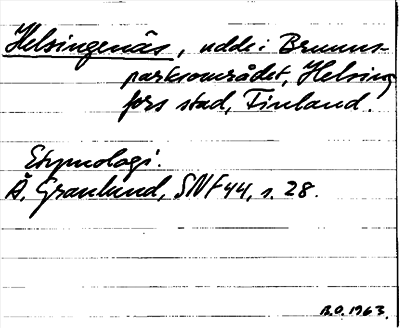 Helsingenäs, udde i Bruns-
parksområdet, Helsing
fors stad, Finland.
Etymologi.
Å. Granlund, SNF 44, s. 28.
B.O. 1963.